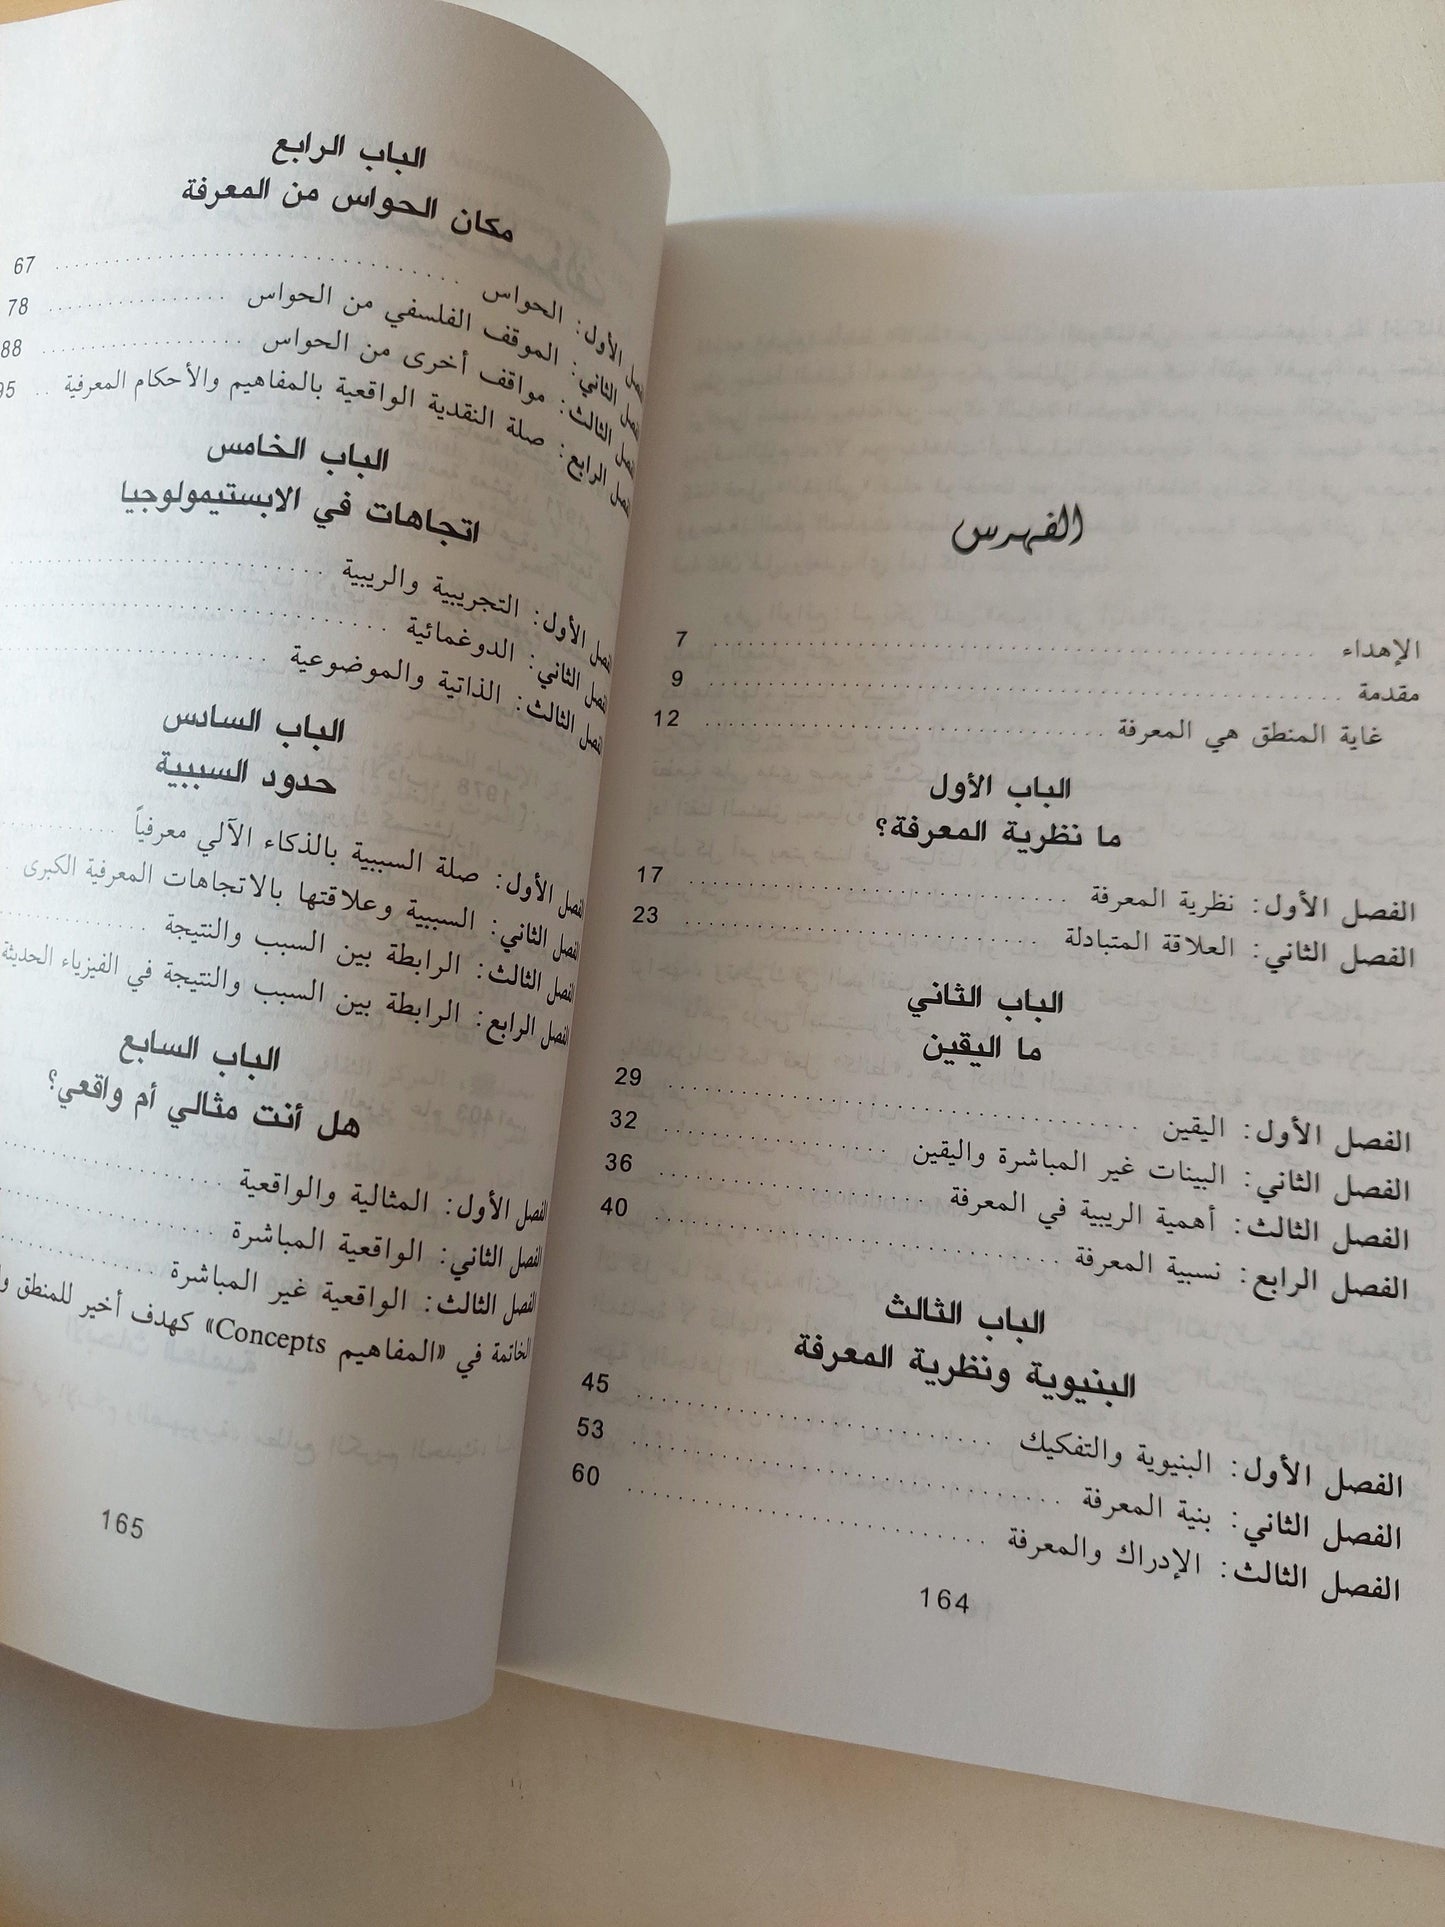 الفهرس
الإهداء ........ 7
مقدمة ........ 9
غاية المنطق هي المعرفة ........ 12
الباب الأول
ما نظرية المعرفة؟
الفصل الأول: نظرية المعرفة ........ 17
الفصل الثاني: العلاقة المتبادلة ........ 23
الباب الثاني
ما اليقين
الفصل الأول: اليقين ........ 29
الفصل الثاني: البينات غير المباشرة واليقين ........ 32
الفصل الثالث: أهمية الريبية في المعرفة ........ 36
الفصل الرابع: نسبية المعرفة ........ 40
الباب الثالث
البنيوية ونظرية المعرفة
الفصل الأول: البنيوية والتفكيك ........ 45
الفصل الثاني: بنية المعرفة ........ 53
الفصل الثالث: الإدراك والمعرفة ........ 60
164
الباب الرابع
مكان الحواس من المعرفة
الأول: الحواس ........ 67
الثاني: الموقف الفلسفي من الحواس ........ 78
الثالث: مواقف أخرى من الحواس ........ 88
الرابع: صلة النقدية الواقعية بالمفاهيم والأحكام المعرفية .. 95
الباب الخامس
اتجاهات في الابستيمولوجيا
الفصل الأول: التجريبية والريبية ........
الفصل الثاني: الدوغمائية ........
الفصل الثالث: الذاتية والموضوعية ........
الباب السادس
حدود السببية
الفصل الأول: صلة السببية بالذكاء الآلي معرفياً ........
الفصل الثاني: السببية وعلاقتها بالاتجاهات المعرفية الكبرى .
الفصل الثالث: الرابطة بين السبب والنتيجة ........
الفصل الرابع: الرابطة بين السبب والنتيجة في الفيزياء الحديثة
الباب السابع
هل أنت مثالي أم واقعي؟
الفصل الأول: المثالية والواقعية ........
الفصل الثاني: الواقعية المباشرة ........
الفصل الثالث: الواقعية غير المباشرة ........
الخاتمة في «المفاهيم Concepts» كهدف أخير للمنطق
165